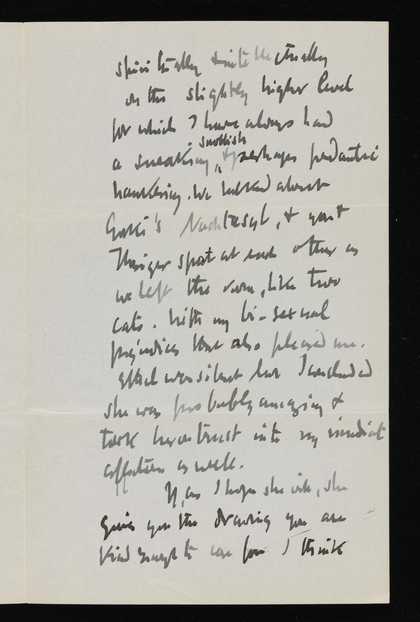 spiritually & intellectually
on the slightly higher level
for which I have always had
a sneaking, snobbish & perhaps pedantic
hankering. We talked about
Gorki's Nachtasyl, & you &
Thesiger spat at each other as
we left the room, like two
cats. With my bi-sexual
prejudices that also pleased me.
Ethel was silent but I concluded
she was probably amazing &
took her on trust into my immediate
affections as well.
If, as I hope she will, she
gives you the drawing you are
kind enough to care for I think